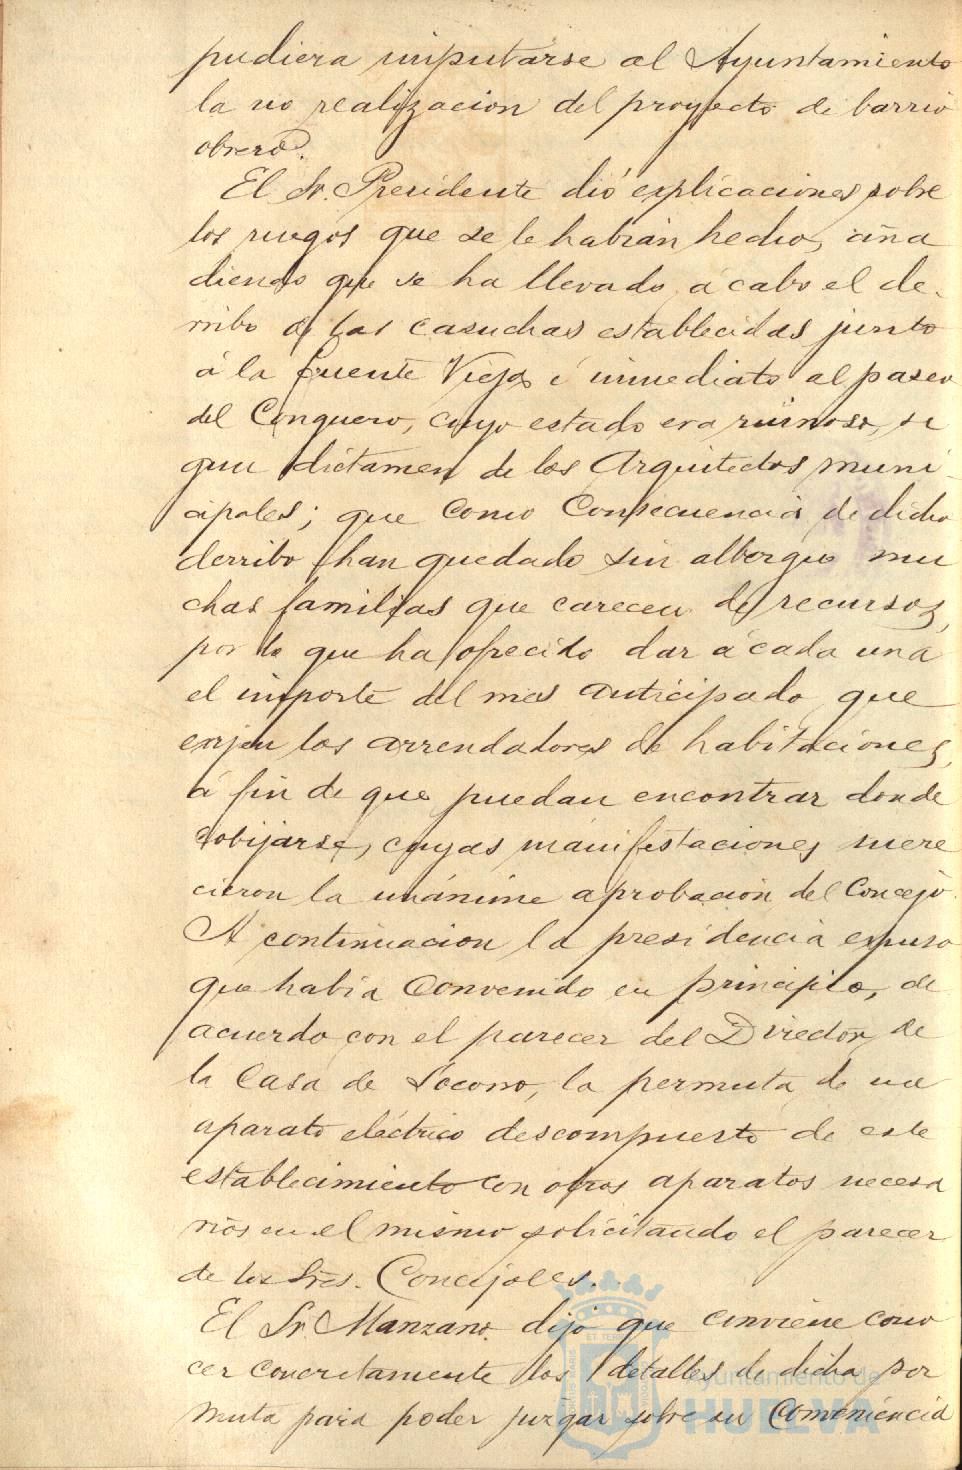 pudiera imputarse al Ayuntamiento
la no realización del proyecto de barrio
obrero.
El Sr. Presidente dió explicaciones sobre
los ruegos que se le habían hecho, aña
diendo que se ha llevado á cabo el de-
rribo de las casuchas establecidas junto
á la Fuente Vieja é inmediato al paseo
del Conquero, cuyo estado era ruinoso, se
gun dictamen de los Arquitectos muni-
cipales; que como consecuencia de dicho
derribo han quedado sin albergue mu
chas familias que carecen de recursos,
por lo que ha ofrecido dar á cada una
el importe del mes anticipado que
exijen los arrendadores de habitaciones,
á fin de que puedan encontrar donde
cobijarse, cuyas manifestaciones mere
cieron la unánime aprobación del Concejo.
A continuacion la presidencia expuso
que había convenido en principio, de
acuerdo con el parecer del Director de
la Casa de Socorro, la permuta de un
aparato eléctrico descompuesto de este
establecimiento con otros aparatos necesa
rios en el mismo solicitando el parecer
de los Sres. Concejales.
El Sr. Manzano dijo que conviene cono
cer concretamente los detalles de dicha per
muta para poder juzgar sobre su conveniencia
Ayuntamiento de
HUELVA